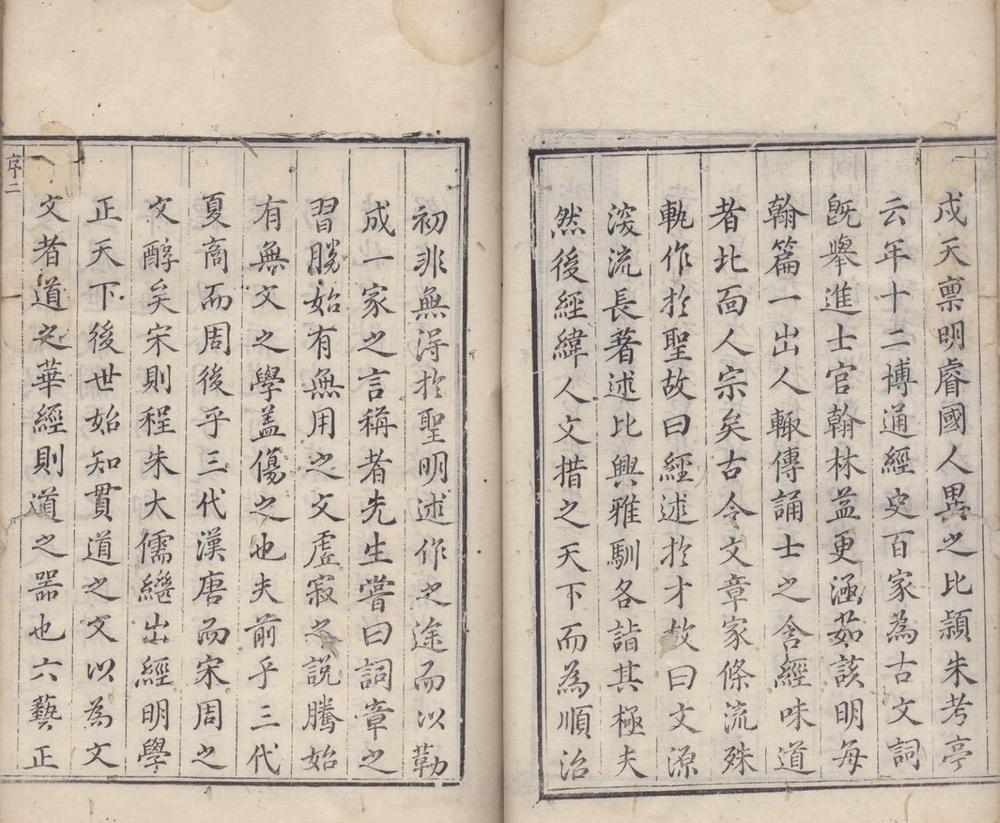 戍天禀明睿國人異之比穎朱考亭
云年十二博通經史百家為古文詞
旣舉進士官翰林益更涵茹該明每
翰篇一出人輙傳誦士之含經味道
者北面人宗矣古今文章家條流殊
軌作於聖故曰經述於才故曰文源
深流長著述比興雅馴各詣其極夫
然後經緯人文措之天下而為順治
初非無淂於聖明述作之途而以勒
成一家之言稱者先生嘗曰詞章之
習勝始有無用之文虛寂之說騰始
有無文之學盖傷之也夫前乎三代
夏商而周後乎三代漢唐而宋周之
文醇矣宋則程朱大儒繼出經明學
正天下後世始知貫道之文以為文
文者道之華經則道之器也六藝正
序二